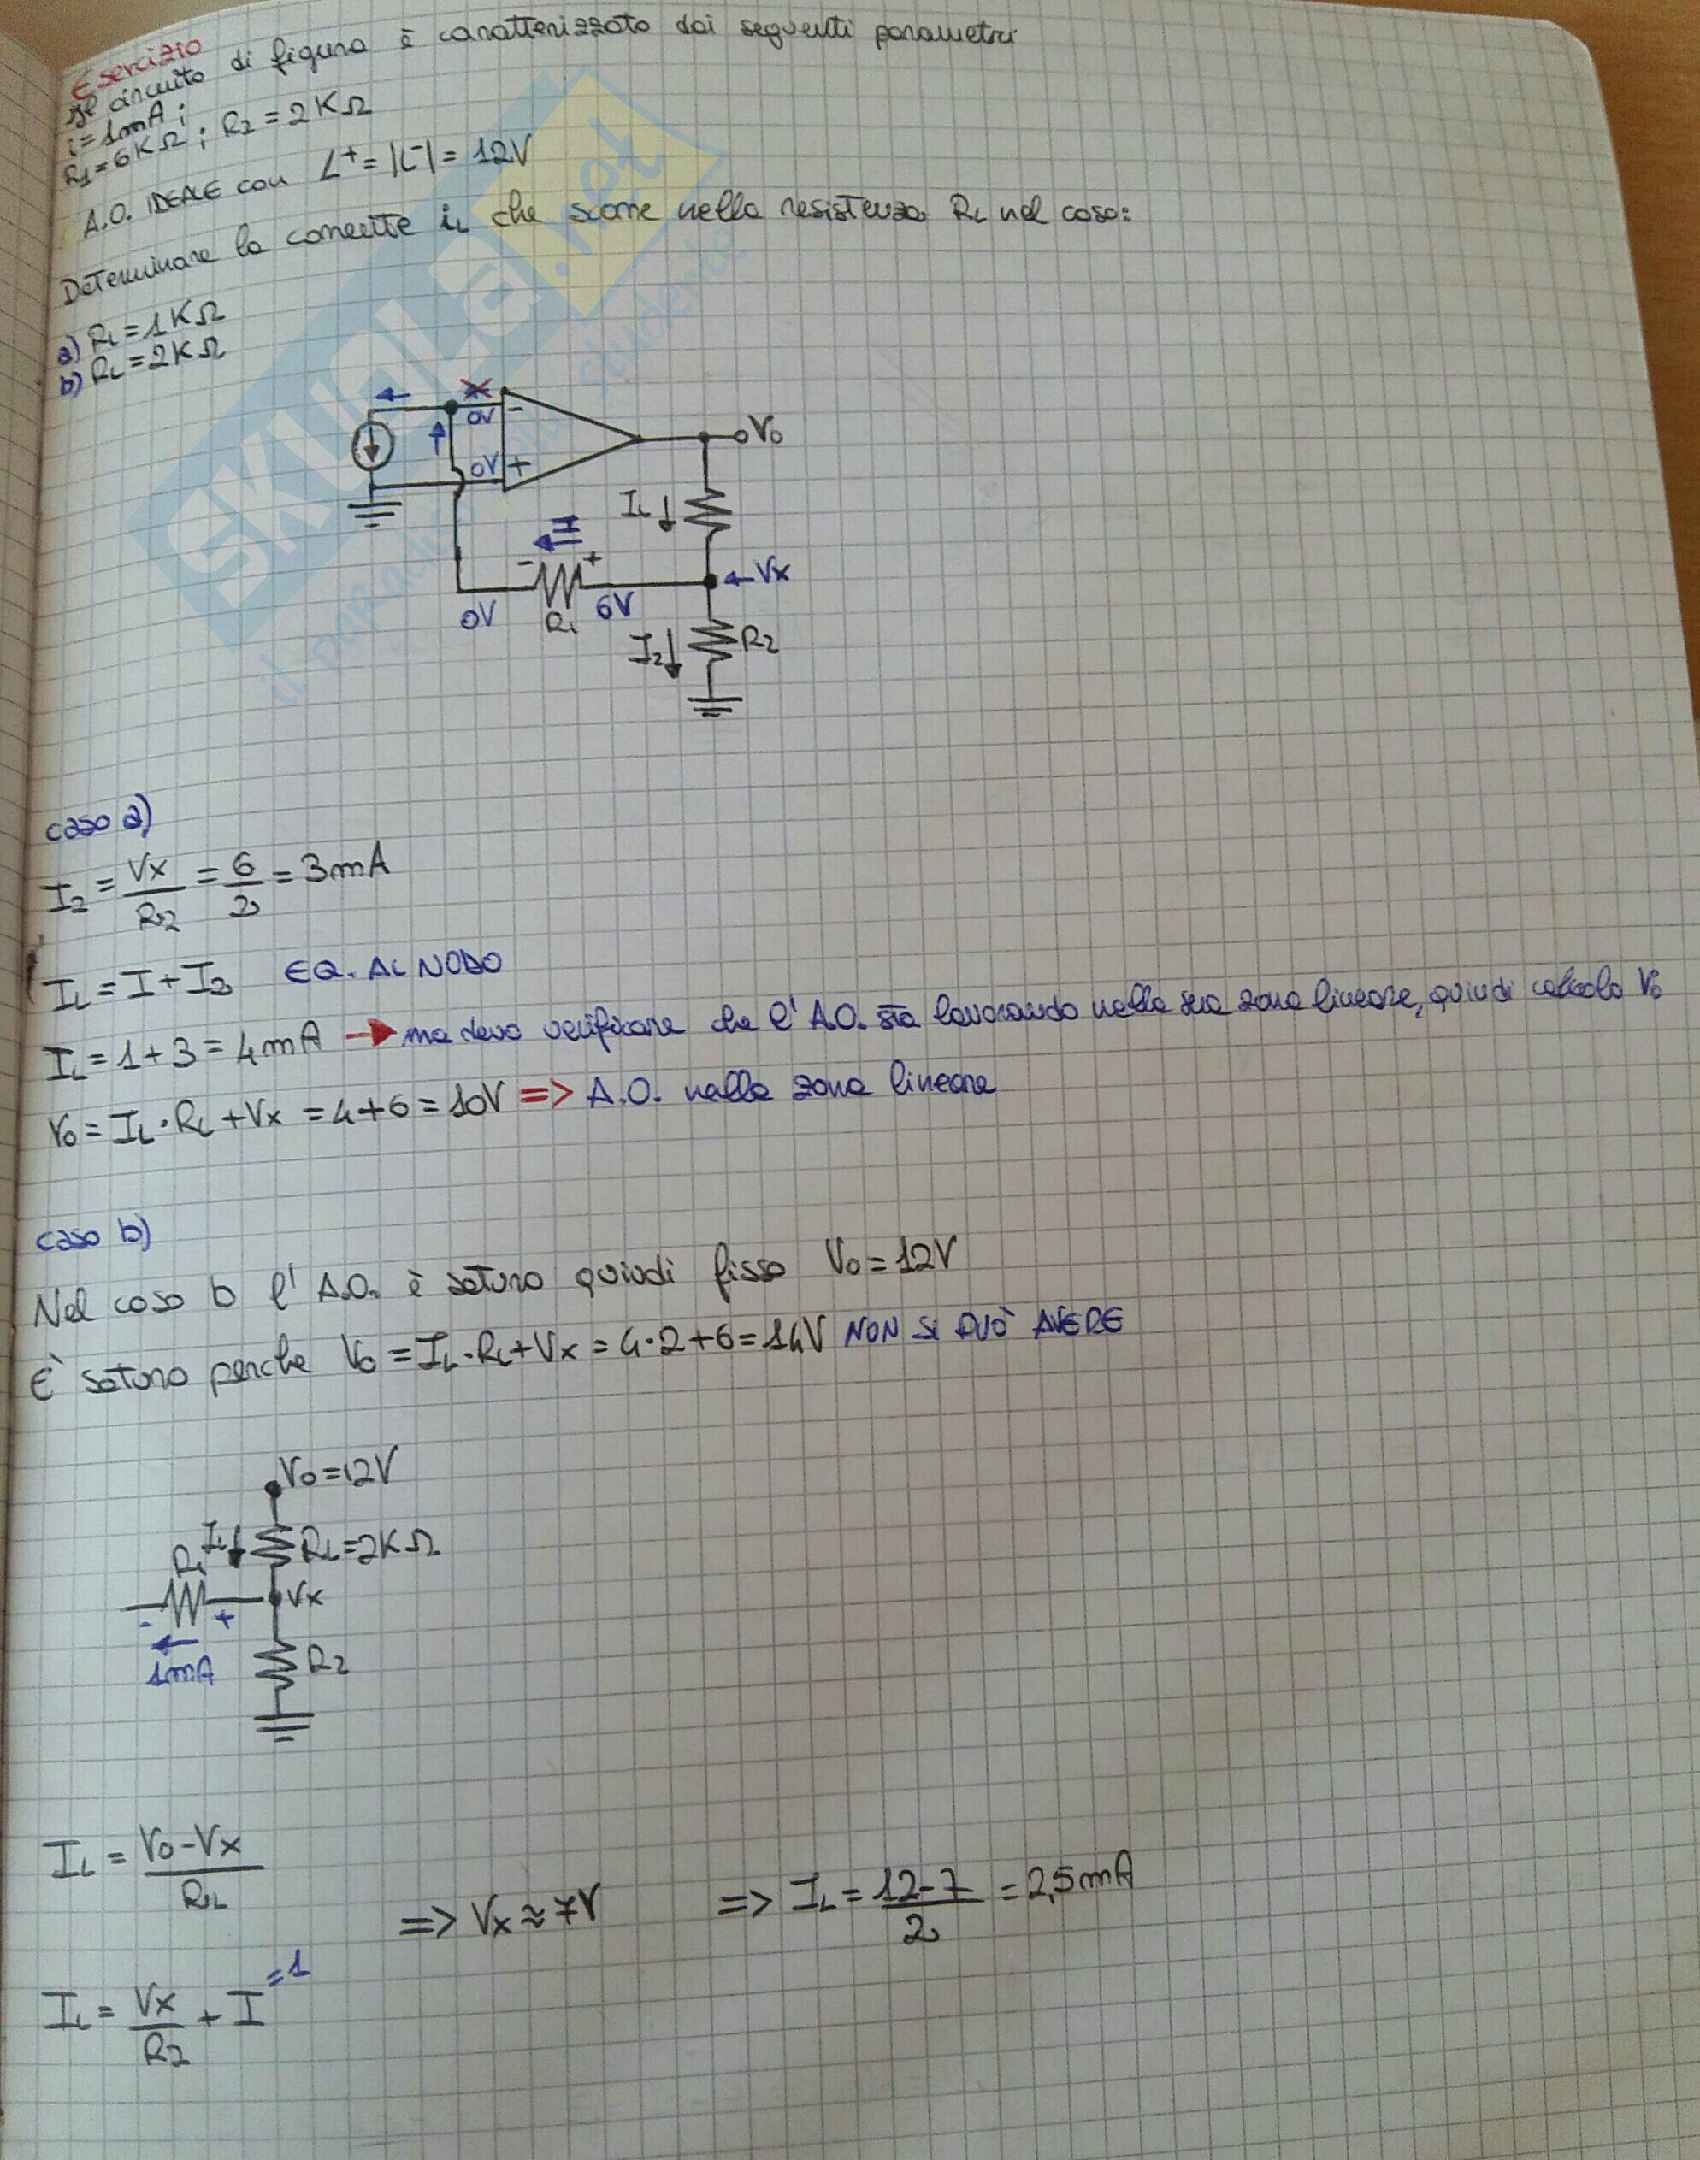 Esercizio
Il circuito di figura è caratterizzato dai seguenti parametri
i=1mA;
R1=6KΩ; R2=2KΩ
A.O. IDEALE con L+=|L-|=12V
Determinare la corrente iL che scorre nella resistenza RL nel caso:
a) RL=1KΩ
b) RL=2KΩ
0V -
0V +
Vo
IL
I
- +
Vx
0V R1 6V
I2 R2
caso a)
I2 = Vx/R2 = 6/2 = 3mA
IL = I+I2 EQ. AL NODO
IL = 1+3 = 4mA → ma devo verificare che l'A.O. sta lavorando nella sua zona lineare, quindi calcolo Vo
Vo = IL·RL+Vx = 4+6 = 10V => A.O. nella zona lineare
caso b)
Nel caso b l'A.O. è saturo quindi fisso Vo=12V
E' saturo perche Vo = IL·RL+Vx = 4·2+6 = 14V NON SI PUÒ AVERE
Vo=12V
IL RL=2KΩ
R1
Vx
- +
1mA R2
IL = Vo-Vx/RL
=> Vx≈7V => IL = 12-7/2 = 2,5mA
IL = Vx/R2 + I =1
SKUOLA.net
il paradiso dello studente